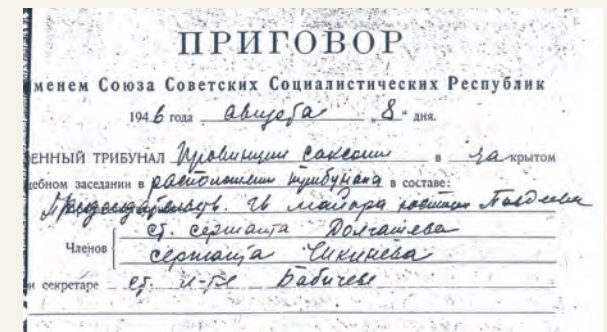 ПРИГОВОР
менем Союза Советских Социалистических Республик
1946 года августа „8“ дня.
ЕННЫЙ ТРИБУНАЛ Провинции Саксонии в закрытом
дебном заседании в расположении трибунала в составе:
Председательств. Гв майора юстиции
Членов ст. сержанта Долгашева
сержанта Чикинева
и секретаре ст. л-те Бабичеве